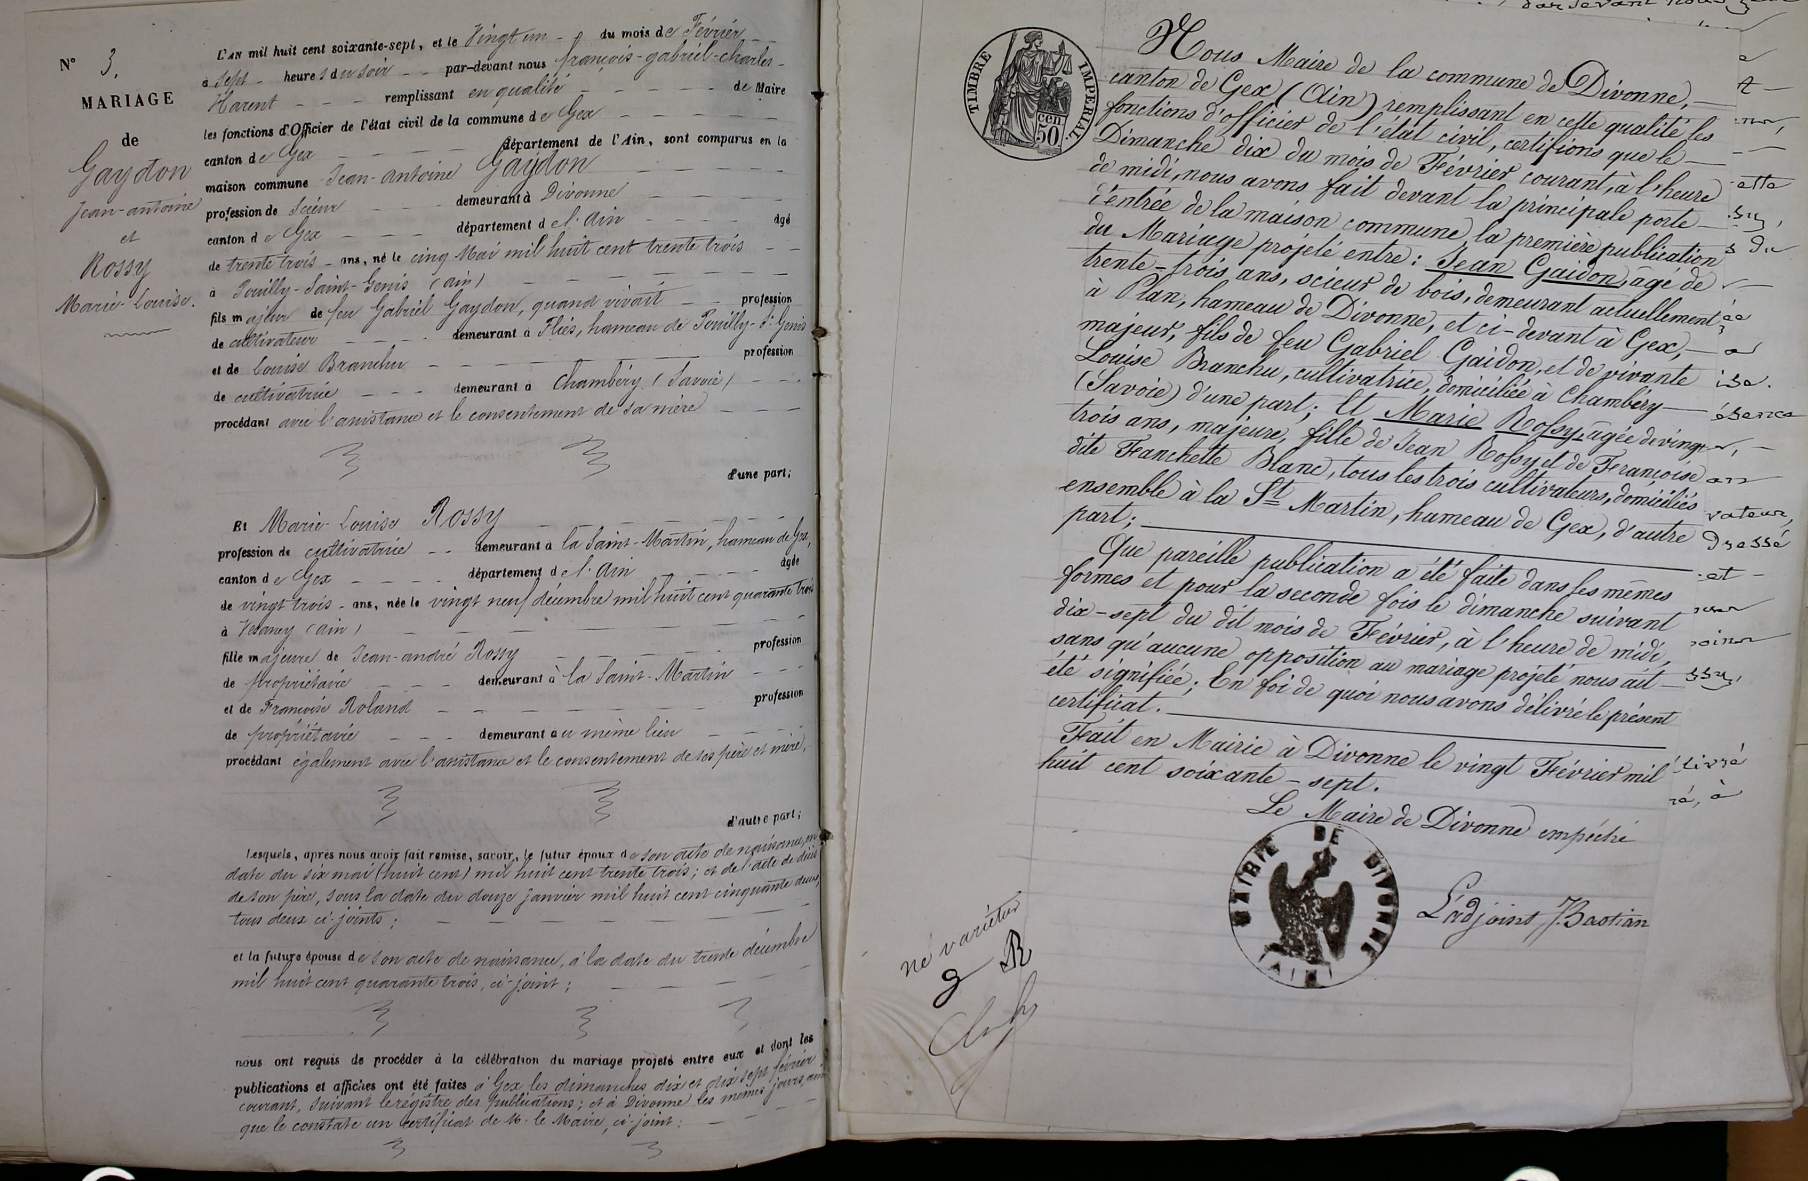 N° 3.
MARIAGE
de
Gaydon
Jean-antoine
et
Rossy
Marie-Louise.
L'An mil huit cent soixante-sept, et le Vingt un du mois de Février
à sept heures du soir par-devant nous françois-gabriel-charles
Harent remplissant en qualité de Maire
les fonctions d'Officier de l'état civil de la commune de Gex
canton de Gex département de l'Ain, sont comparus en la
maison commune Jean-Antoine Gaydon
profession de Scieur demeurant à Divonne
canton de Gex département de l'Ain âgé
de trente trois ans, né le cinq Mai mil huit cent trente trois
à Pouilly-Saint-Genis (ain)
fils majeur de feu Gabriel Gaydon, quand vivait profession
de cultivateur demeurant à Fliés, hameau de Pouilly-St Genis
et de Louise Branchu profession
de cultivatrice demeurant à Chambéry (Savoie)
procédant avec l'assistance et le consentement de sa mère
d'une part;
Et Marie-Louise Rossy
profession de cultivatrice demeurant à la Saint-Martin, hameau de Gex,
canton de Gex département de l'Ain âgée
de vingt trois ans, née le vingt neuf décembre mil huit cent quarante trois
à Vesancy (ain)
fille majeure de Jean-andré Rossy profession
de propriétaire demeurant à la Saint-Martin
et de Françoise Roland profession
de propriétaire demeurant au même lieu
procédant également avec l'assistance et le consentement de ses père et mère.
d'autre part;
Lesquels, après nous avoir fait remise, savoir, le futur époux de son acte de naissance, en
date du six mai (huit cent) mil huit cent trente trois; et de l'acte de décès
de son père, sous la date du douze janvier mil huit cent cinquante deux,
tous deux ci-joints;
et la future épouse de son acte de naissance, à la date du trente décembre
mil huit cent quarante trois, ci-joint;
nous ont requis de procéder à la célébration du mariage projeté entre eux et dont les
publications et affiches ont été faites à Gex les dimanches dix et dix sept février
courant, suivant le registre des publications; et à Divonne les mêmes jours, ainsi
que le constate un certificat de M. le Maire, ci-joint:
TIMBRE IMPERIAL
50 cen
Nous Maire de la commune de Divonne,
canton de Gex (Ain) remplissant en cette qualité les
fonctions d'officier de l'état civil, certifions que le
Dimanche dix du mois de Février courant, à l'heure
de midi, nous avons fait devant la principale porte
d'entrée de la maison commune la première publication
du Mariage projeté entre: Jean Gaidon, âgé de
trente-trois ans, scieur de bois, demeurant actuellement
à Plan, hameau de Divonne, et ci-devant à Gex,
majeur, fils de feu Gabriel Gaidon, et de vivante
Louise Branchu, cultivatrice, domiciliée à Chambéry
(Savoie) d'une part; Et Marie Rossy, âgée de vingt
trois ans, majeure, fille de Jean Rossy et de Françoise
dite Franchette Blanc, tous les trois cultivateurs, domiciliés
ensemble à la St Martin, hameau de Gex, d'autre
part;
Que pareille publication a été faite dans les mêmes
formes et pour la seconde fois le dimanche suivant
dix-sept du dit mois de Février, à l'heure de midi,
sans qu'aucune opposition au mariage projeté nous ait
été signifiée; En foi de quoi nous avons délivré le présent
certificat.
Fait en Mairie à Divonne le vingt Février mil
huit cent soixante-sept.
Le Maire de Divonne empêché
MAIRIE DE DIVONNE
(AIN)
L'adjoint J. Bastian
né varietur